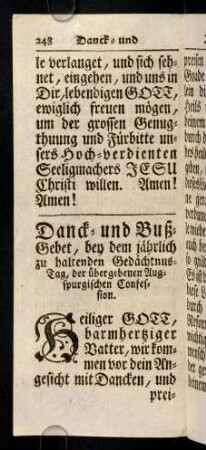 248 Danck- und
le verlanget, und sich seh-
net, eingehen, und uns in
Dir, lebendigen GOTT,
ewiglich freuen mögen,
um der grossen Genug-
thuung und Fürbitte un-
sers Hoch-verdienten
Seeligmachers JESU
Christi willen. Amen!
Amen!
Danck- und Buß-
Gebet, bey dem jährlich
zu haltenden Gedächtnus-
Tag, der übergebenen Aug-
spurgischen Confes-
sion.
Heiliger GOTT,
barmhertziger
Vatter, wir kom-
men vor dein An-
gesicht mit Dancken, und
prei-